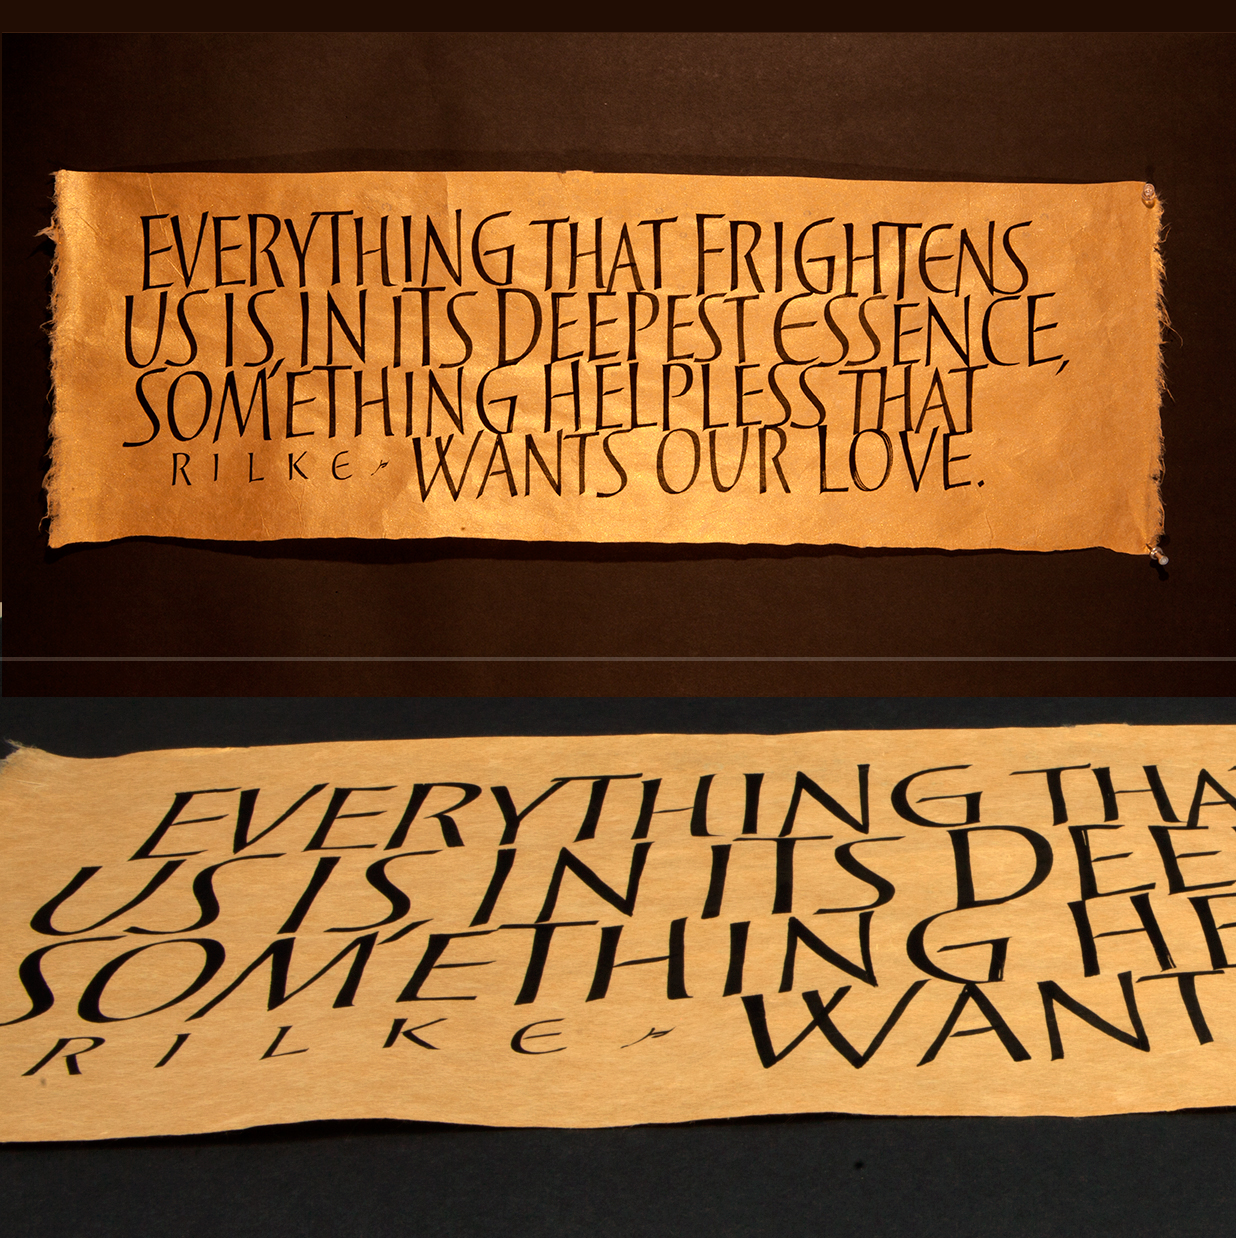 EVERYTHING THAT FRIGHTENS
US IS, IN ITS DEEPEST ESSENCE,
SOMETHING HELPLESS THAT
RILKE WANTS OUR LOVE.
EVERYTHING THA
US IS, IN ITS DEE
SOMETHING HE
RILKE WANT